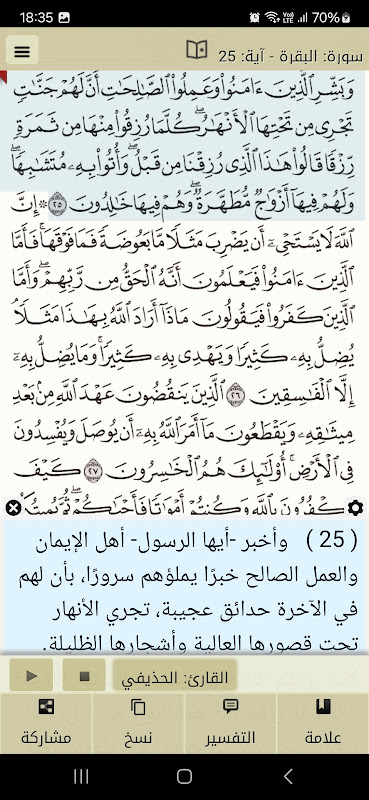 18:35
70%
سورة: البقرة - آية: 25
وَبَشِّرِ ٱلَّذِينَ ءَامَنُوا۟ وَعَمِلُوا۟ ٱلصَّـٰلِحَـٰتِ أَنَّ لَهُمْ جَنَّـٰتٍ
تَجْرِى مِن تَحْتِهَا ٱلْأَنْهَـٰرُ ۖ كُلَّمَا رُزِقُوا۟ مِنْهَا مِن ثَمَرَةٍ
رِّزْقًا قَالُوا۟ هَـٰذَا ٱلَّذِى رُزِقْنَا مِن قَبْلُ ۖ وَأُتُوا۟ بِهِۦ مُتَشَـٰبِهًا ۖ
وَلَهُمْ فِيهَآ أَزْوَٰجٌ مُّطَهَّرَةٌ ۖ وَهُمْ فِيهَا خَـٰلِدُونَ ٢٥ ۞ إِنَّ
ٱللَّهَ لَا يَسْتَحْىِۦٓ أَن يَضْرِبَ مَثَلًا مَّا بَعُوضَةً فَمَا فَوْقَهَا ۚ فَأَمَّا
ٱلَّذِينَ ءَامَنُوا۟ فَيَعْلَمُونَ أَنَّهُ ٱلْحَقُّ مِن رَّبِّهِمْ ۖ وَأَمَّا
ٱلَّذِينَ كَفَرُوا۟ فَيَقُولُونَ مَاذَآ أَرَادَ ٱللَّهُ بِهَـٰذَا مَثَلًا ۘ
يُضِلُّ بِهِۦ كَثِيرًا وَيَهْدِى بِهِۦ كَثِيرًا ۚ وَمَا يُضِلُّ بِهِۦٓ
إِلَّا ٱلْفَـٰسِقِينَ ٢٦ ٱلَّذِينَ يَنقُضُونَ عَهْدَ ٱللَّهِ مِنۢ بَعْدِ
مِيثَـٰقِهِۦ وَيَقْطَعُونَ مَآ أَمَرَ ٱللَّهُ بِهِۦٓ أَن يُوصَلَ وَيُفْسِدُونَ
فِى ٱلْأَرْضِ ۚ أُو۟لَـٰٓئِكَ هُمُ ٱلْخَـٰسِرُونَ ٢٧ كَيْفَ
تَكْفُرُونَ بِٱللَّهِ وَكُنتُمْ أَمْوَٰتًا فَأَحْيَـٰكُمْ ۖ ثُمَّ يُمِيتُكُمْ
( 25 ) وأخبر -أيها الرسول- أهل الإيمان
والعمل الصالح خبرًا يملؤهم سرورًا، بأن لهم
في الآخرة حدائق عجيبة، تجري الأنهار
تحت قصورها العالية وأشجارها الظليلة.
القارئ: الحذيفي
علامة
التفسير
نسخ
مشاركة